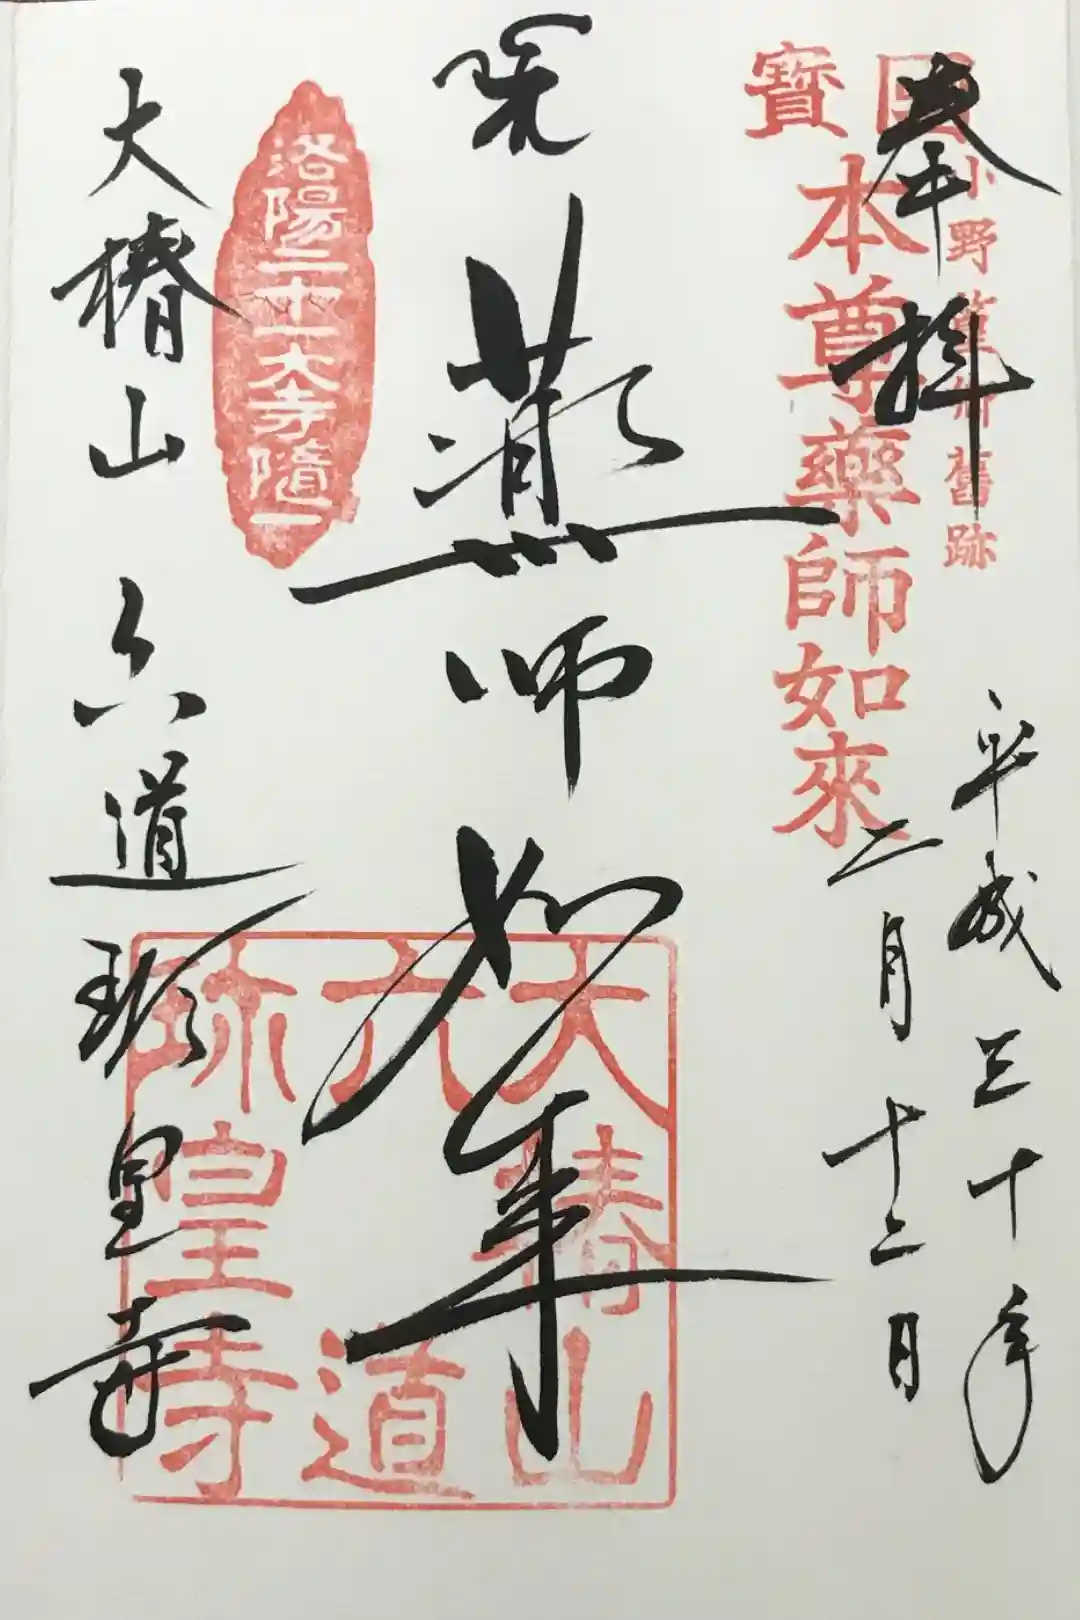 奉拝
平成三十年
二月十二日
國寶
小野篁卿舊跡
本尊藥師如來
醫王
藥師如来
洛陽二十一大寺隨一
大椿山 六道珍皇寺
大椿山
六道
珎皇寺